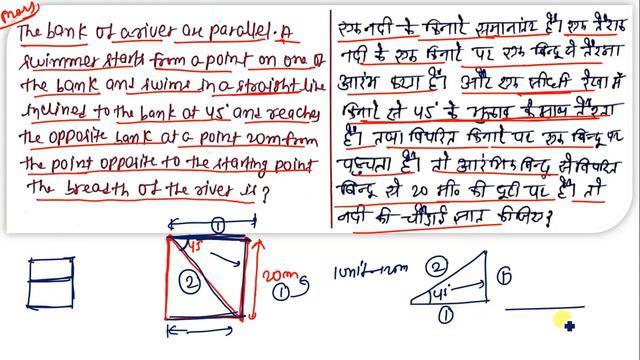 Mons
The bank of a river are parallel. A
swimmer starts from a point on one of
the bank and swims in a straight line
inclined to the bank at 45° and reaches
the opposite bank at a point 20m from
the point opposite to the starting point
the breadth of the river is?
एक नदी के किनारे समानांतर है। एक तैराक
नदी के एक किनारे पर एक बिन्दु से तैरना
आरंभ करता है। और एक सीधी रेखा में
किनारे से 45° के झुकाव के साथ तैरता
है। तथा विपरित किनारे पर एक बिन्दु पर
पहुचता है। जो आरंभिक बिन्दु से विपरित
बिन्दु से 20 मी० की दूरी पर है। तो
नदी की चौड़ाई ज्ञात कीजिए?
1
45
2
20m
1
1unit→20m
2
45°
1
1